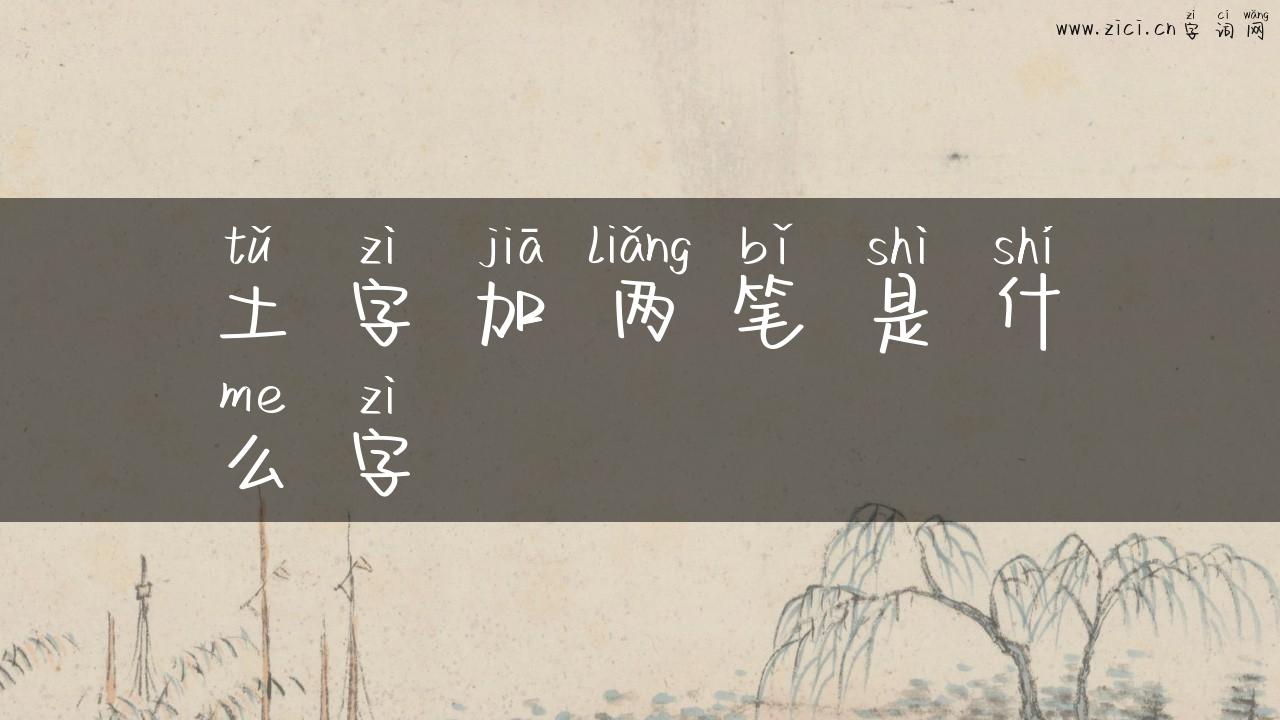 zì cí wǎng
www.zici.cn 字词网
tǔ zì jiā liǎng bǐ shì shí
土字加两笔是什
me zì
么字